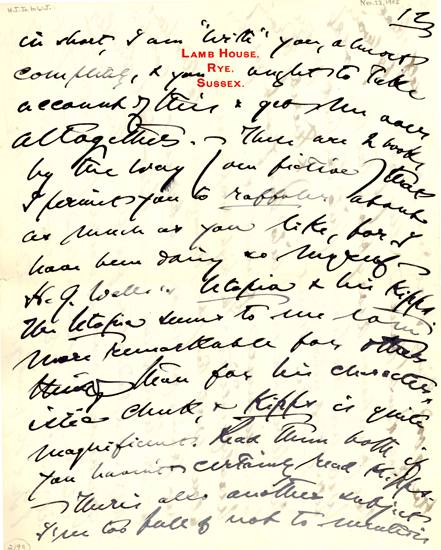 H.J. to W.J.
Nov. 23, 1905
12
in short, I am "with" you, almost
completely, & you ought to take
LAMB HOUSE.
RYE.
SUSSEX.
account of this & get me over
altogether. — There are 2 books
by the way (one fictive) that
I permit you to raffoler about
as much as you like, for I
have been doing so myself —
H. G. Wells's Utopia & his Kipps
The Utopia seems to me
more remarkable for other
things than for his characters
cheek, & Kipps is quite
magnificent. Read them both if
you haven't — certainly read Kipps.
— There's also another subject
I'm too full of not to mention
2199